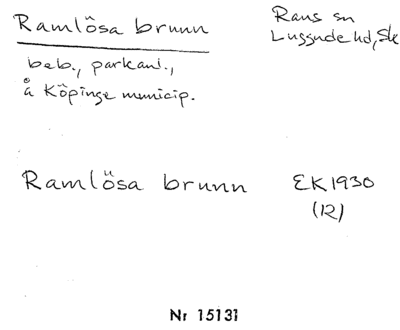 Ramlösa brunn
Raus sn
Luggude hd, Sk
beb., parkanl.,
å Köpinge municip.
Ramlösa brunn EK 1930
(12)
Nr 15131